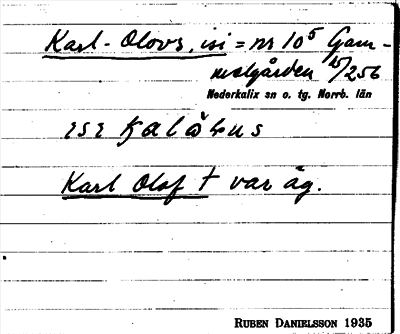 Karl-Olovs, isi = nr 10⁵ Gam-
melgården 15/256
Nederkalix sn o. tg. Norrb. län
Karl Olof † var äg.
RUBEN DANIELSSON 1935